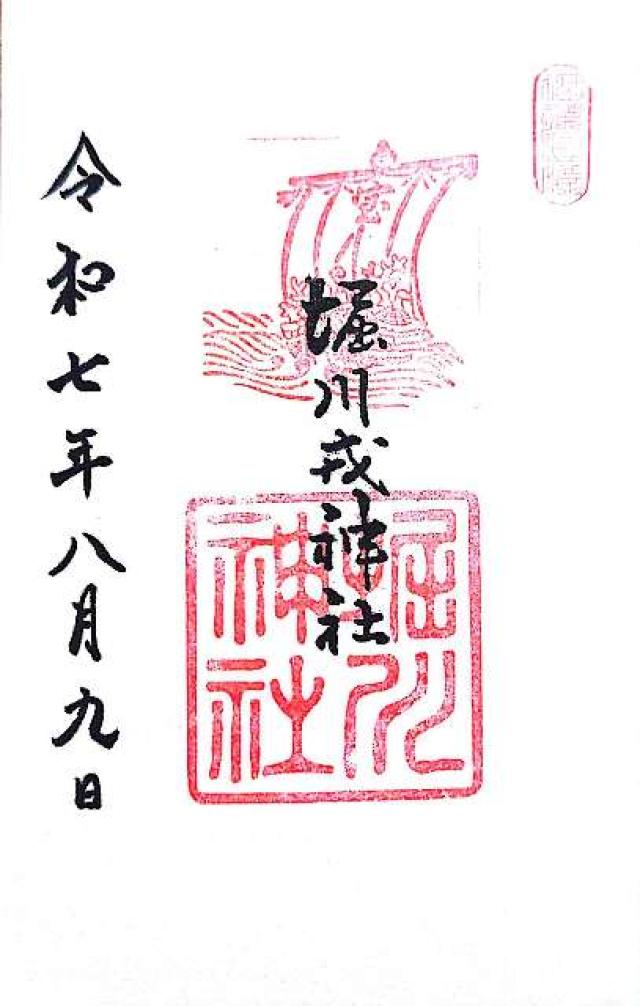 宝
堀川戎神社
堀川
神社
令和七年八月九日